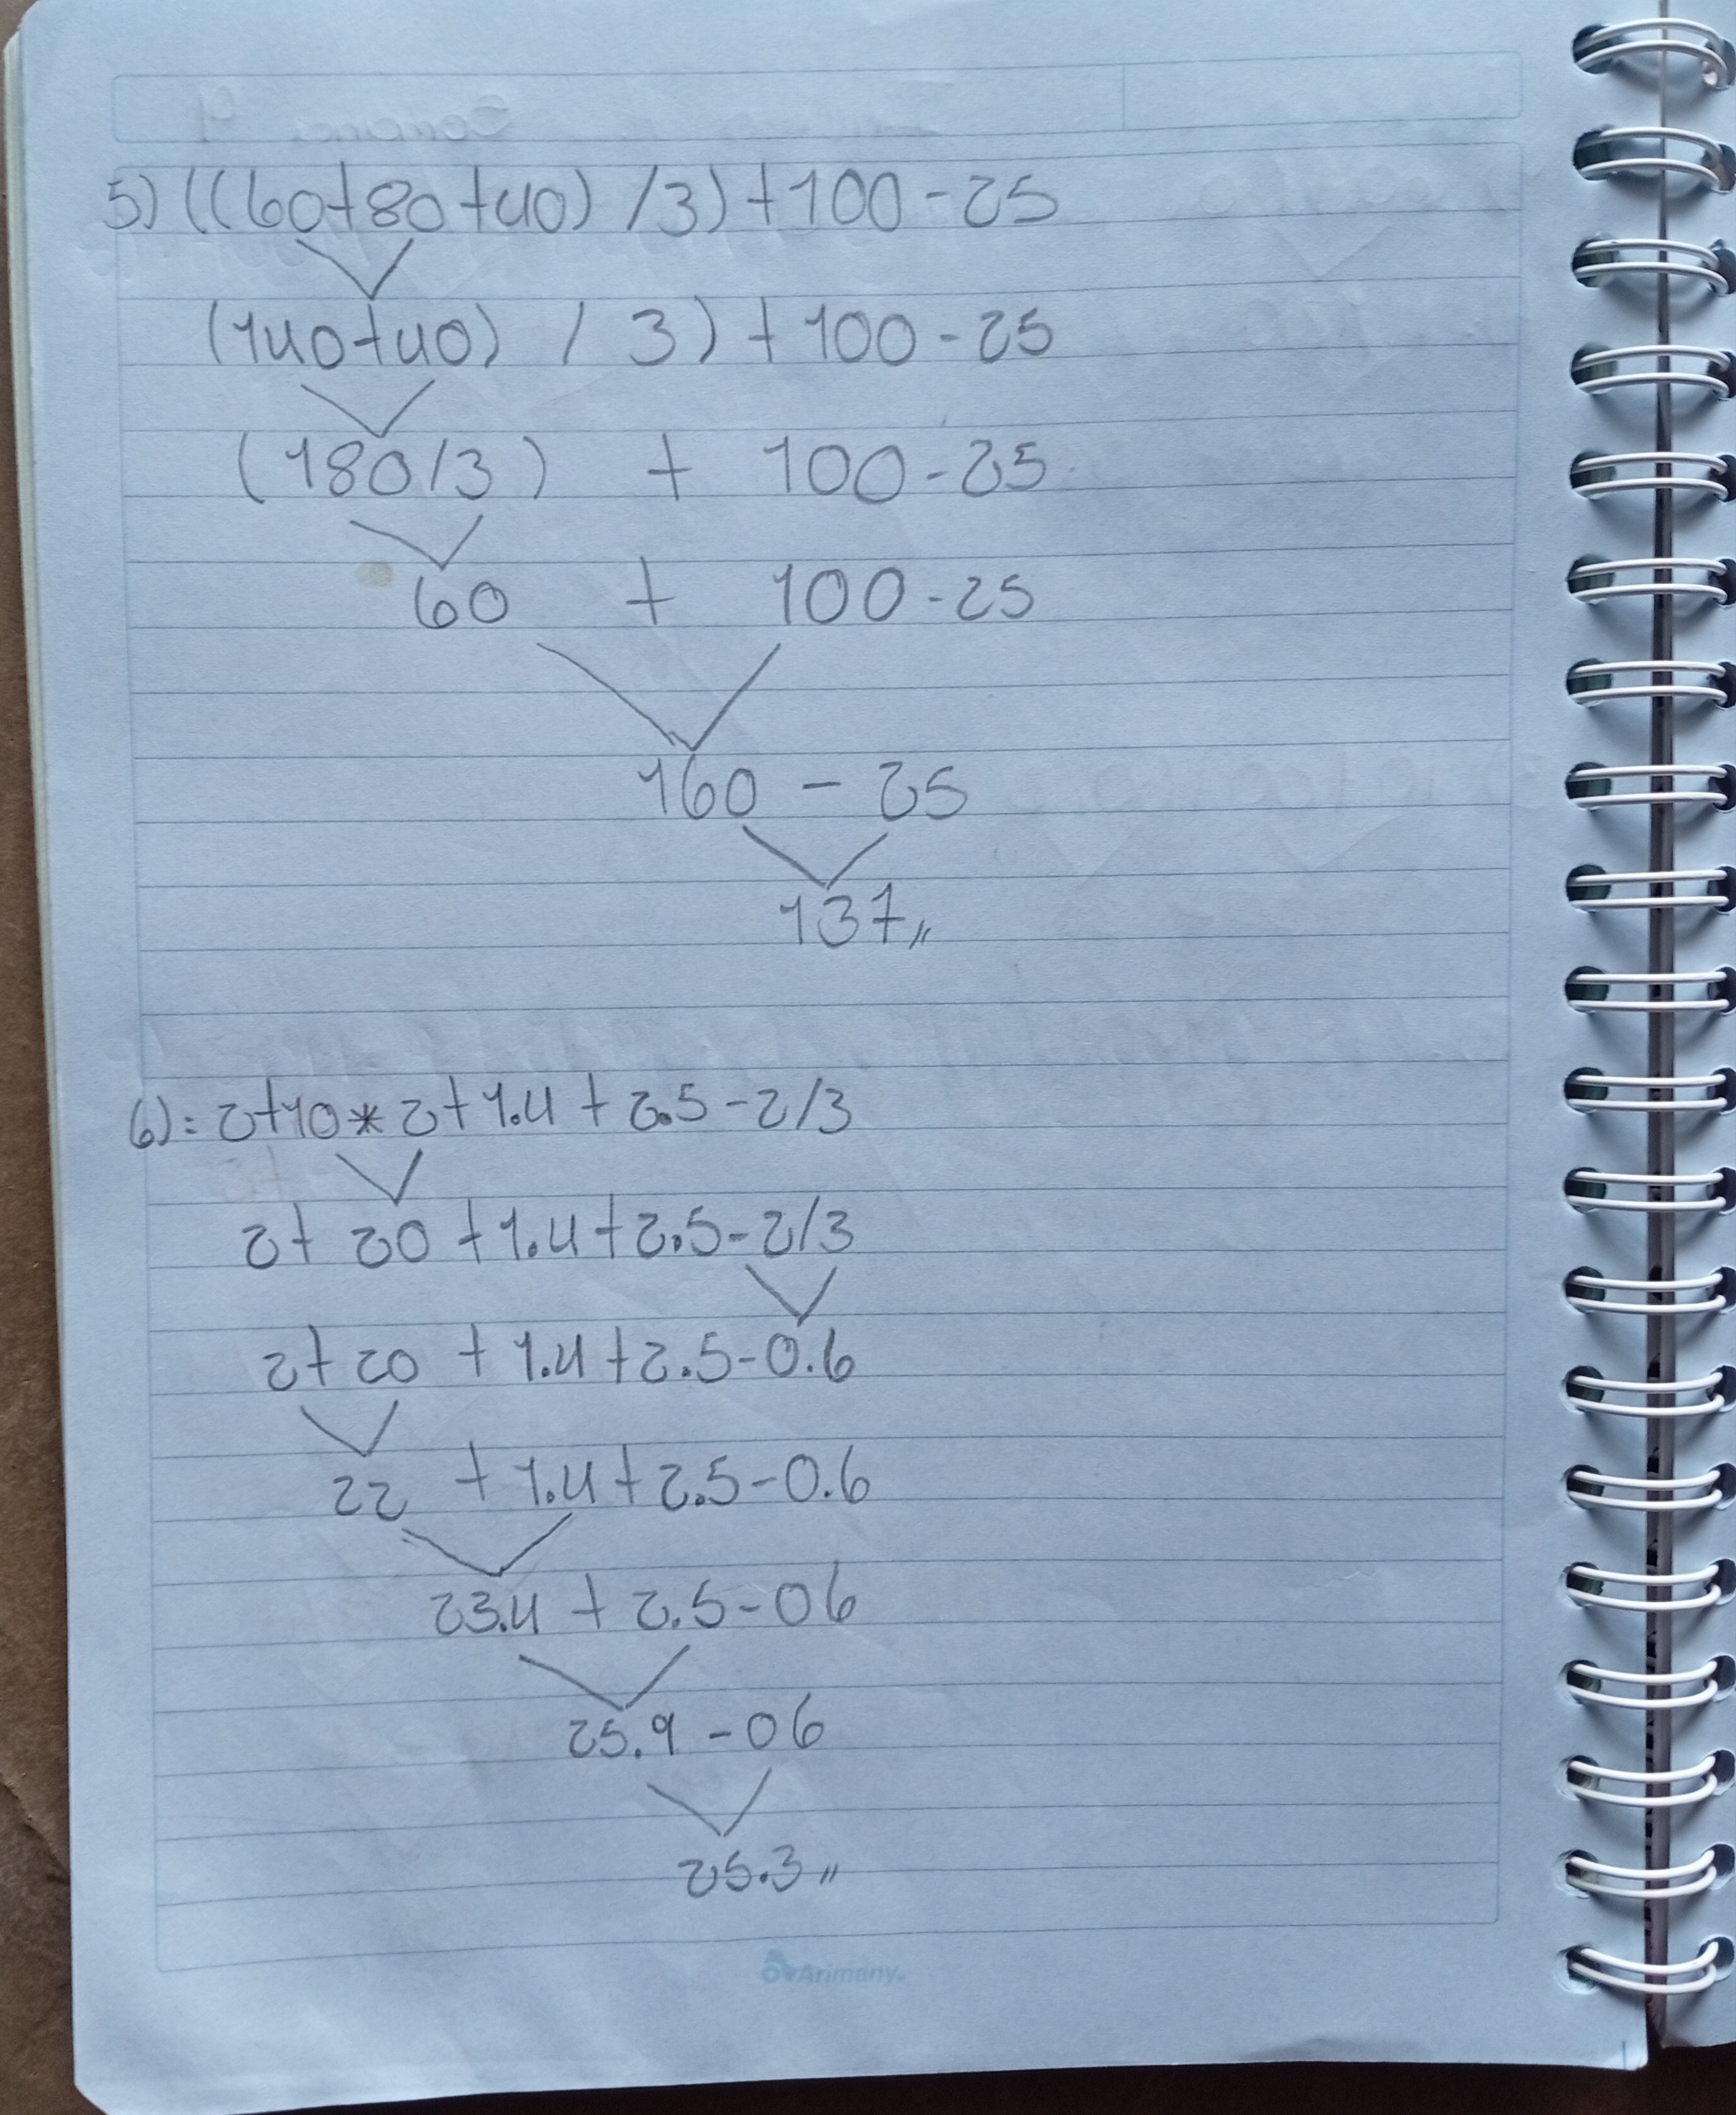 5) ((60+80+40) /3)+100-25
(140+40) / 3)+100-25
(180/3) + 100-25
60 + 100-25
160 - 25
137,,
6):= 2+10*2+1.4+2.5-2/3
2+ 20 +1.4+2.5-2/3
2+20 +1.4+2.5-0.6
22 +1.4+2.5-0.6
23.4 + 2.5-06
25.9 -06
25.3,,
Arimany